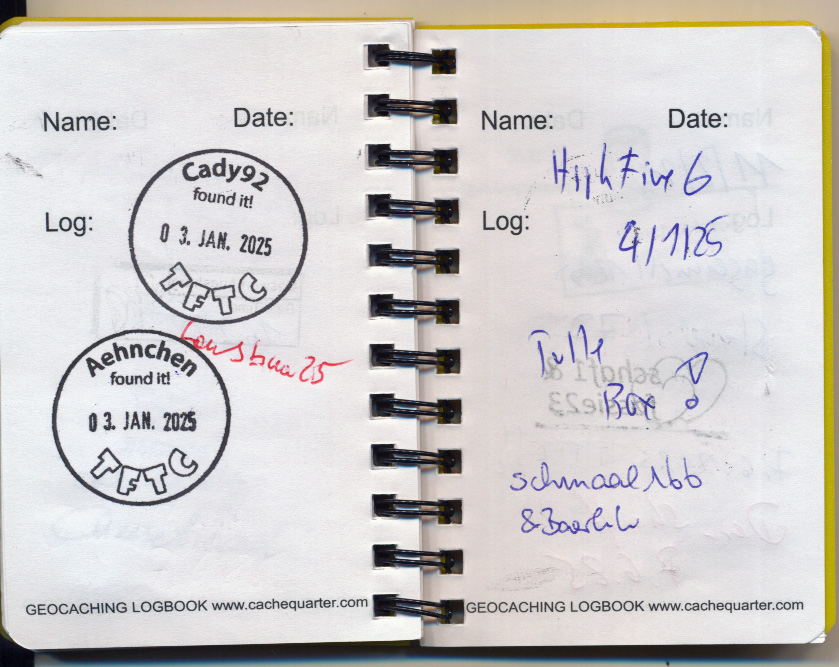 Name: Date:
Cady92
found it!
Log:
0 3. JAN. 2025
TFTC
Aehnchen
found it!
0 3. JAN. 2025
TFTC
GEOCACHING LOGBOOK www.cachequarter.com
Name: Date:
HighFive6
Log:
4/1/25
Tolle
Box!
schmaal166
GEOCACHING LOGBOOK www.cachequarter.com